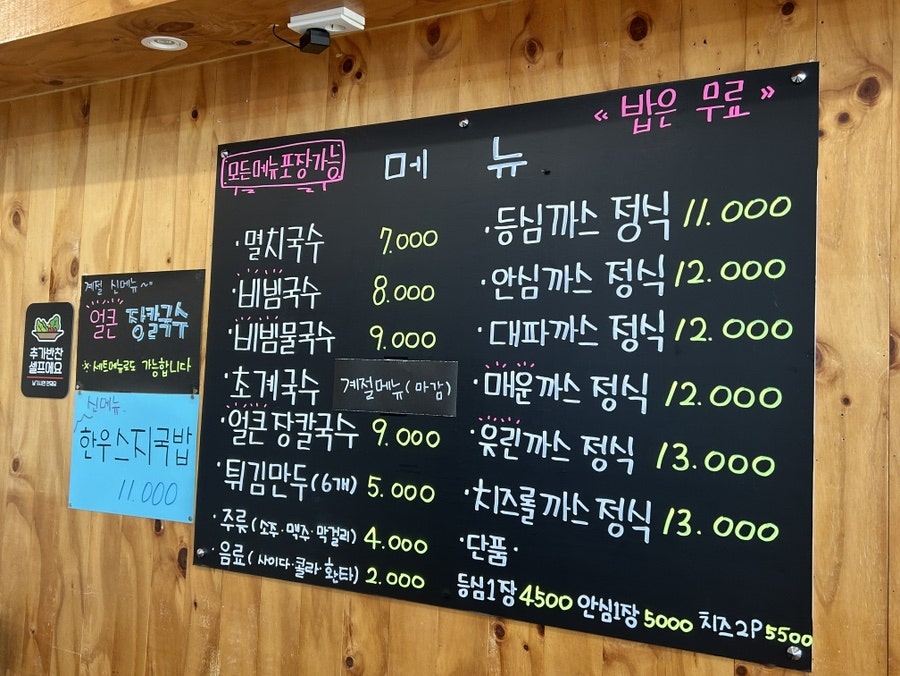 모든메뉴포장가능
메 뉴
《 밥은 무료 》
·멸치국수 7.000
·비빔국수 8.000
·비빔물국수 9.000
·초계국수 계절메뉴(마감)
·얼큰장칼국수 9.000
·튀김만두(6개) 5.000
·주류(소주·맥주·막걸리) 4.000
·음료(사이다·콜라·환타) 2.000
·등심까스 정식 11.000
·안심까스 정식 12.000
·대파까스 정식 12.000
·매운까스 정식 12.000
·유린까스 정식 13.000
·치즈롤까스 정식 13.000
·단품·
등심1장 4500 안심1장 5000 치즈2P 5500
계절 신메뉴~
얼큰 장칼국수
※세트메뉴로도 가능합니다
신메뉴
한우스지국밥
11.000
추가반찬
셀프에요